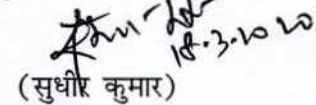 18.3.2020
(सुधीर कुमार)